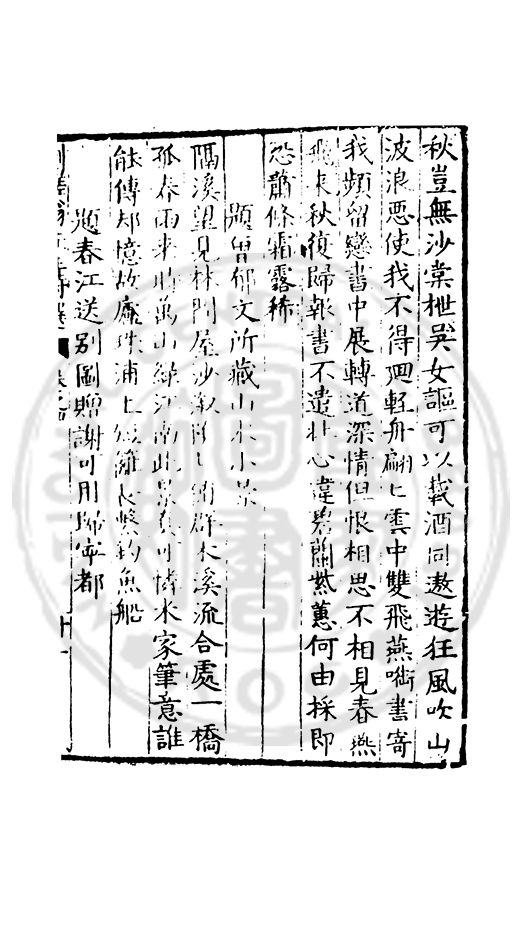 秋豈無沙棠枻吳女謳可以載酒同遨遊狂風吹山
波浪惡使我不得迴輕舟翩匕雲中雙飛燕啣書寄
我頻留戀書中展轉道深情但恨相思不相見春燕
飛来秋復歸報書不遣壮心違碧蘭紫蕙何由採即
恐蕭條霜露稀
題曽郁文所藏山水小景
隔溪望見林間屋沙溆群木溪流合處一橋
孤春雨来時萬山綠江南此景可憐米家筆意誰
能傳却憶故廬珠浦上短籬長繫釣魚船
題春江送别圖贈謝可用歸寧都